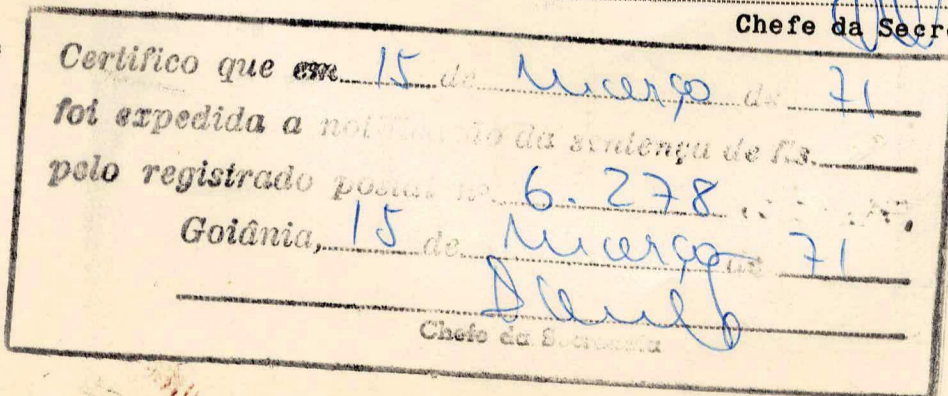 Chefe da Secre
Certifico que em 15 de Março de 71
foi expedida a notificação da sentença de fls.
pelo registrado postal nº 6.278
Goiânia, 15 de Março de 71
Chefe da Secretaria